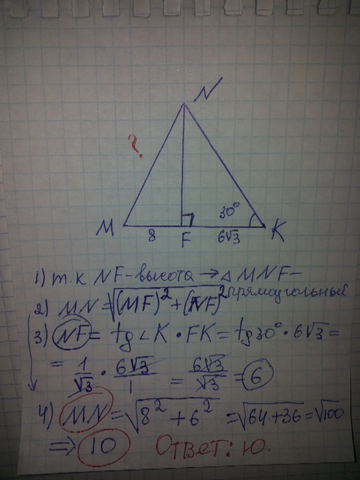 N
?
M
8
F
30°
6√3
K
1) т.к NF-высота → △ MNF-
прямоугольный
2) MN=√(MF)²+(NF)²
3) NF = tg∠K · FK = tg30° · 6√3 =
= 1/√3 · 6√3/1 = 6√3/√3 = 6
4) MN = √8² + 6² = √64+36 = √100
⇒ 10 Ответ: 10.